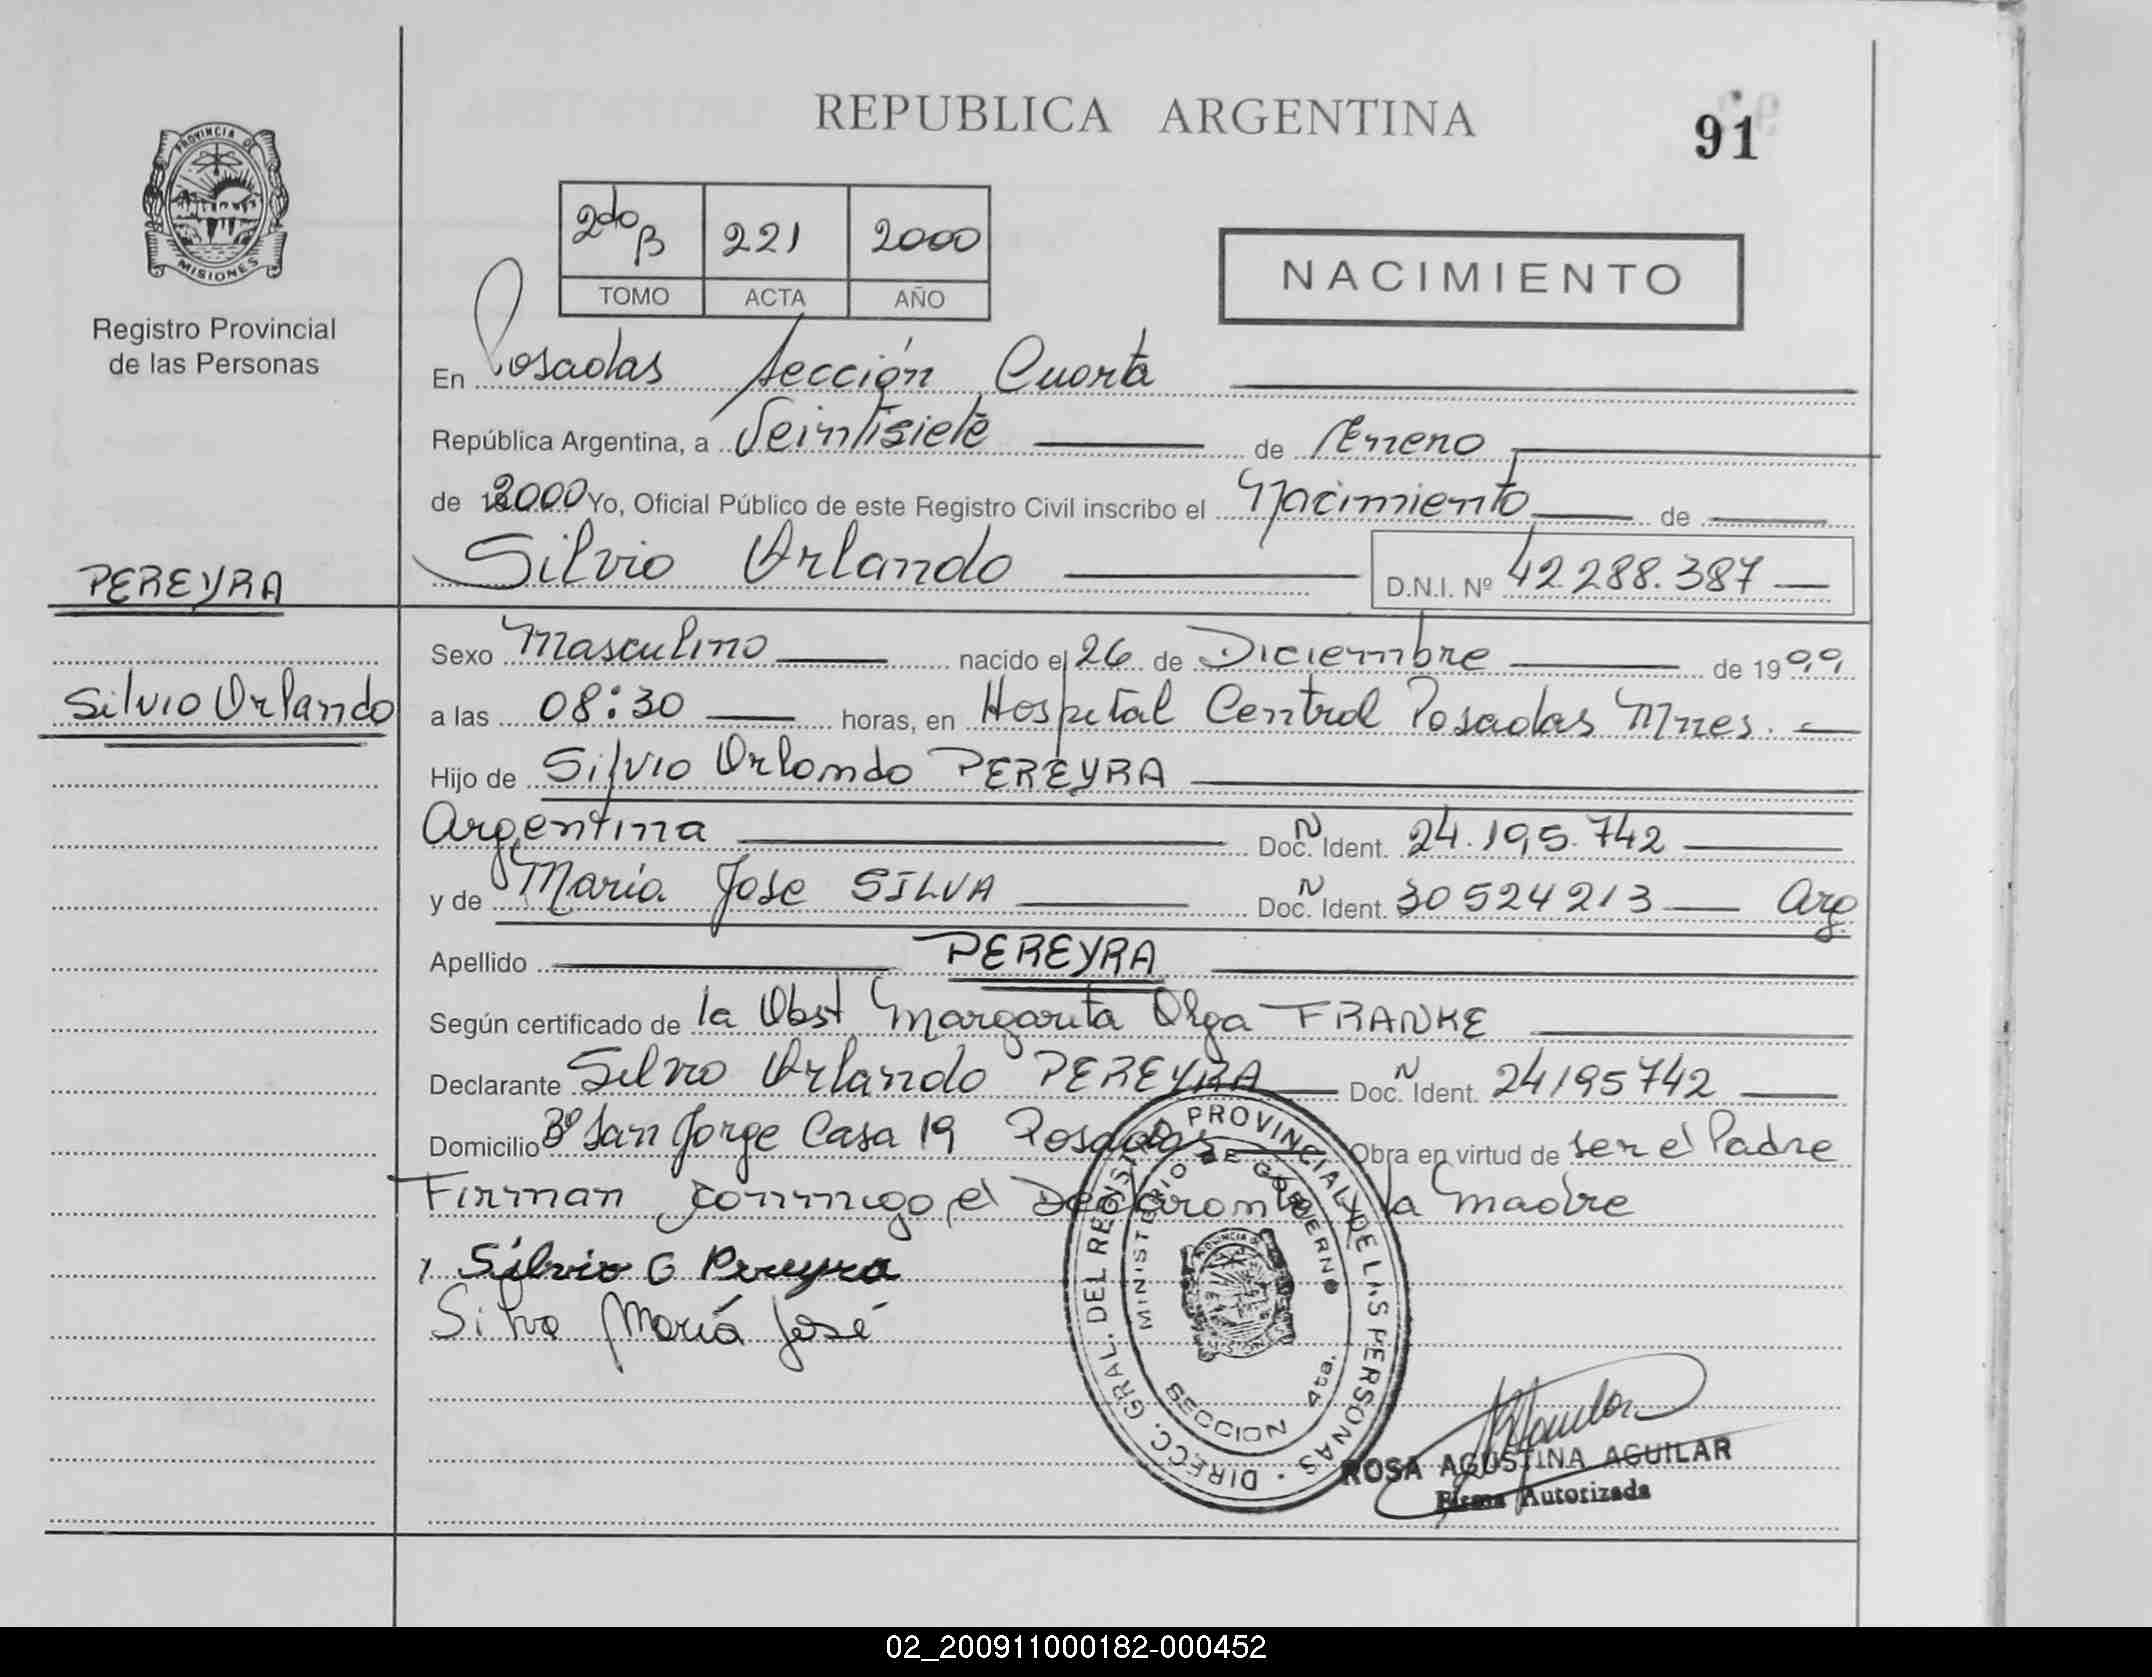 REPUBLICA ARGENTINA
91
PROVINCIA DE
MISIONES
Registro Provincial
de las Personas
2do B 221 2000
TOMO ACTA AÑO
NACIMIENTO
En Posadas Sección Cuarta
República Argentina, a Veintisiete de Enero
de 2000 Yo, Oficial Público de este Registro Civil inscribo el Nacimiento de
Silvio Orlando D.N.I. Nº 42.288.387
PEREYRA
Silvio Orlando
Sexo Masculino nacido el 26 de Diciembre de 1999
a las 08:30 horas, en Hospital Central Posadas Mnes.
Hijo de Silvio Orlando PEREYRA
Argentina Doc. N Ident. 24.195.742
y de María Jose SILVA Doc. N Ident. 30524213 Arg.
Apellido PEREYRA
Según certificado de la Obst Margarita Olga FRANKE
Declarante Silvio Orlando PEREYRA Doc. N Ident. 24195742
Domicilio Bº San Jorge Casa 19 Posadas Obra en virtud de ser el Padre
Firman conmigo el Declarante y la madre
Silvio O Pereyra
Silva María José
DIRECC. GRAL. DEL REGISTRO PROVINCIAL DE LAS PERSONAS
MINISTERIO DE GOBIERNO
SECCION 4ta.
ROSA AGUSTINA AGUILAR
Firma Autorizada
02_200911000182-000452